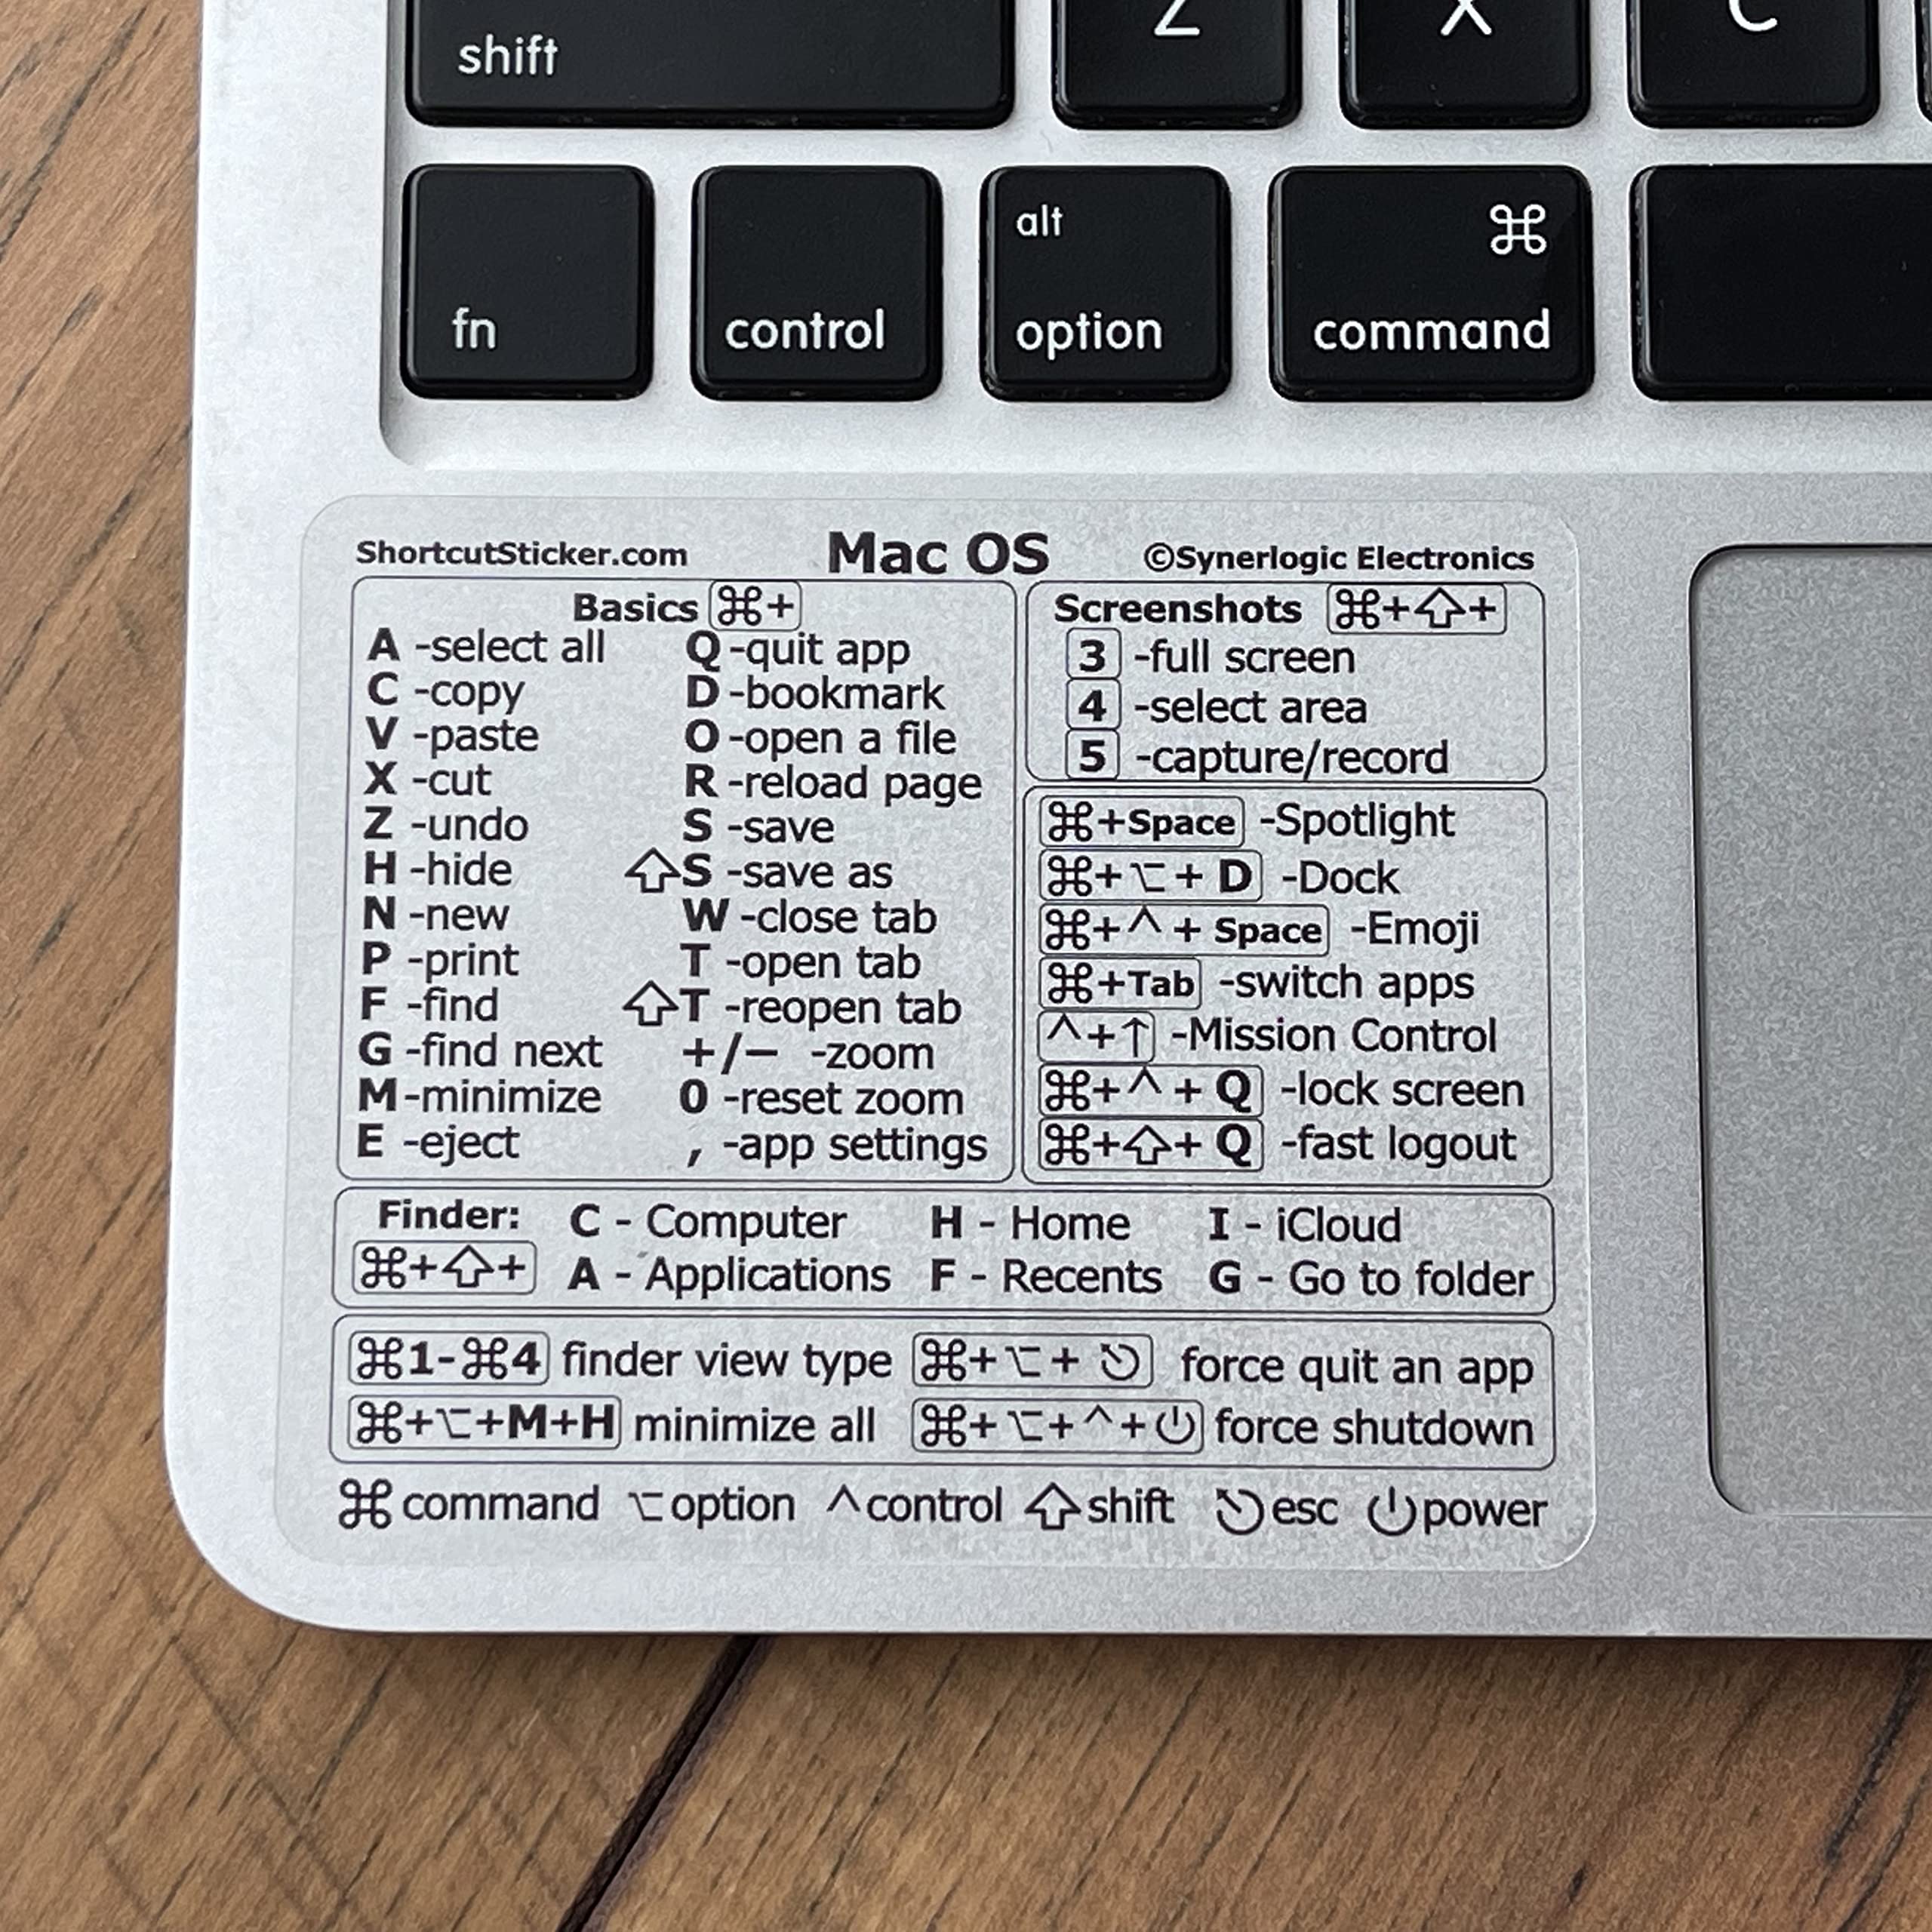 shift Z X C
alt ⌘
fn control option command
ShortcutSticker.com Mac OS ©Synerlogic Electronics
Basics ⌘+
A -select all Q -quit app
C -copy D -bookmark
V -paste O -open a file
X -cut R -reload page
Z -undo S -save
H -hide ⇧S -save as
N -new W -close tab
P -print T -open tab
F -find ⇧T -reopen tab
G -find next +/− -zoom
M -minimize 0 -reset zoom
E -eject , -app settings
Screenshots ⌘+⇧+
3 -full screen
4 -select area
5 -capture/record
⌘+Space -Spotlight
⌘+⌥+ D -Dock
⌘+^+ Space -Emoji
⌘+Tab -switch apps
^+↑ -Mission Control
⌘+^+ Q -lock screen
⌘+⇧+ Q -fast logout
Finder: C - Computer H - Home I - iCloud
⌘+⇧+ A - Applications F - Recents G - Go to folder
⌘1-⌘4 finder view type ⌘+⌥+ ⎋ force quit an app
⌘+⌥+M+H minimize all ⌘+⌥+^+⏻ force shutdown
⌘ command ⌥ option ^ control ⇧ shift ⎋ esc ⏻ power